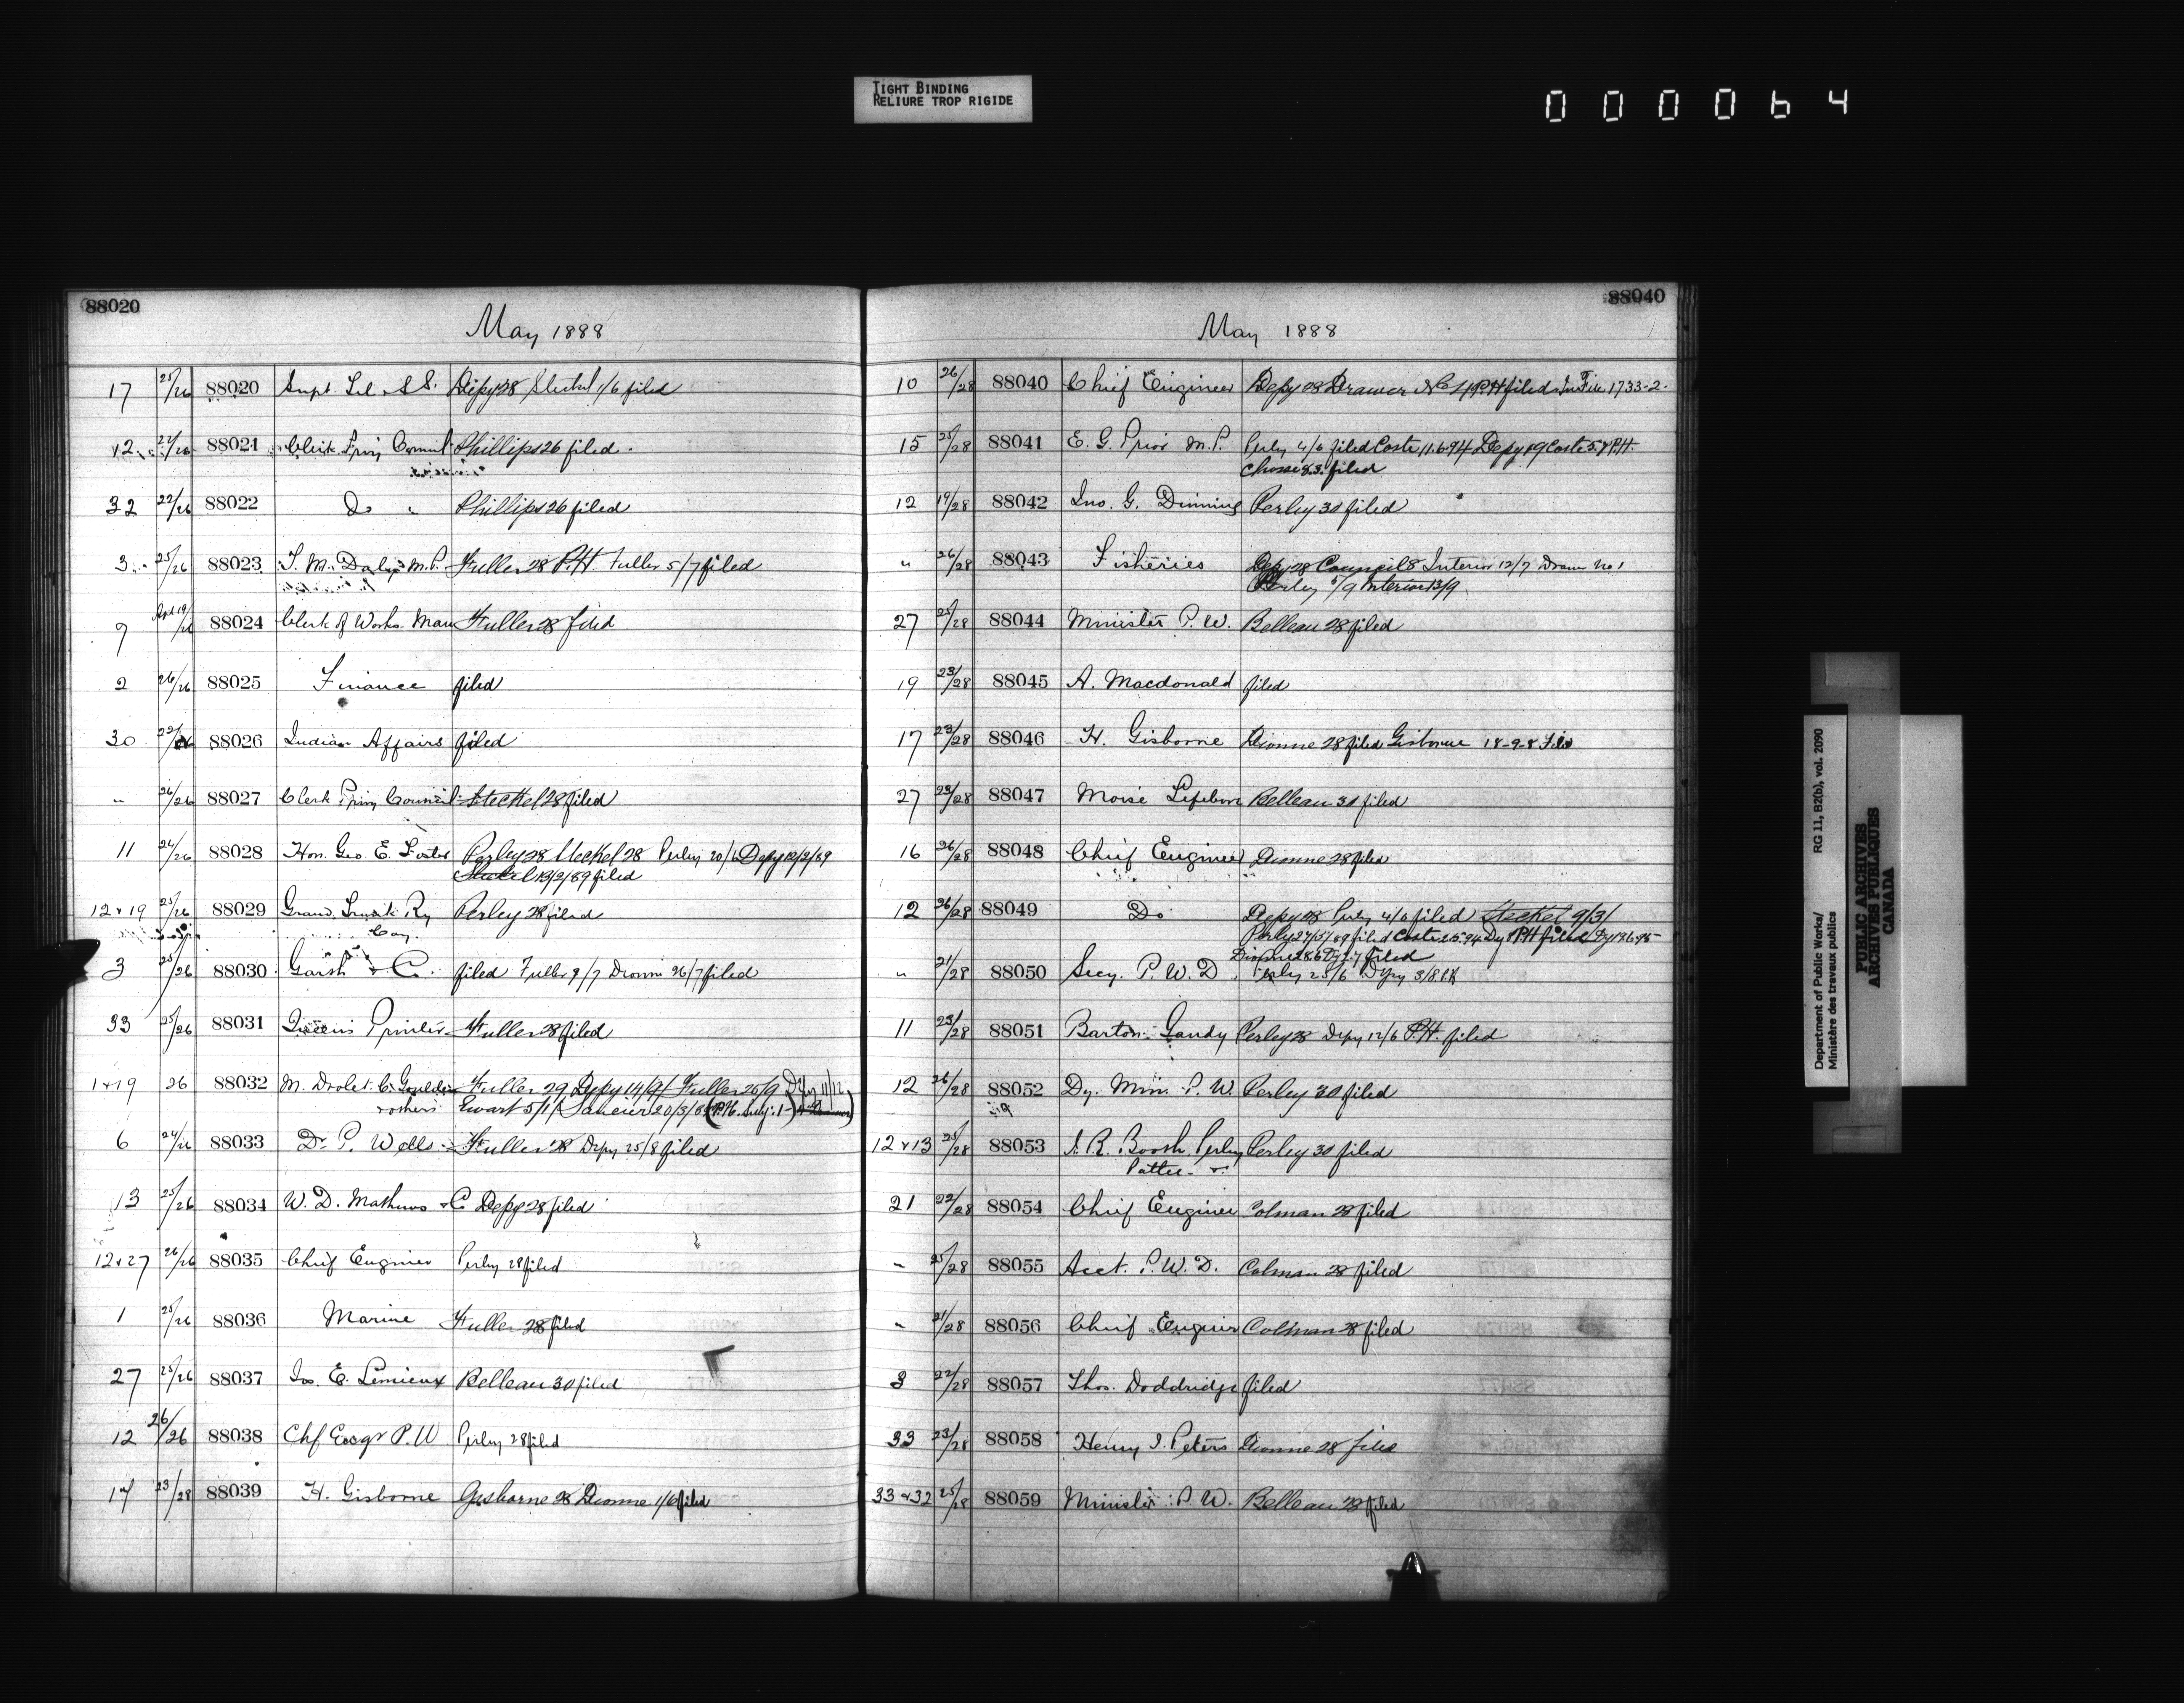 TIGHT BINDING
RELIURE TROP RIGIDE
000064
88020
May 1888
17 25/26 88020 Supt. Tel. S.S. Depy 28 Steckel 1/6 filed
12 22/26 88021 Clerk Privy Council Phillips 26 filed
32 22/26 88022 Do " Phillips 26 filed
3 25/26 88023 T. M. Daly M.P. Fuller 28 P.H. Fuller 5/7 filed
9 Apl 19/26 88024 Clerk of Works. Man Fuller 28 filed
2 26/26 88025 Finance filed
30 88026 Indian Affairs filed
" 26/26 88027 Clerk Privy Council Steckel 28 filed
11 24/26 88028 Hon. Geo. E. Foster Perley 28 Steckel 28 Perley 20/6 Depy 12/2/89
Steckel 13/2/89 filed
12 & 19 25/26 88029 Grand Trunk Ry Perley 28 filed
Coy.
3 25/26 88030 Garth & Co. filed Fuller 9/7 Dionne 26/7 filed
33 25/26 88031 Queen's Printer Fuller 28 filed
1 & 19 26 88032 M. Drolet. Fuller 29 Depy 14/9 Fuller 25/9 Dy 11/12
& others Ewart 5/1 20/3/89
6 24/26 88033 Dr. P. Wells Fuller 28 Depy 25/8 filed
13 25/26 88034 W. D. Mathews & Co Depy 28 filed
12 & 27 26/26 88035 Chief Engineer Perley 28 filed
1 25/26 88036 Marine Fuller 28 filed
27 25/26 88037 Jos. E. Lemieux Belleau 30 filed
12 26/26 88038 Chf Engr P. W Perley 28 filed
17 23/28 88039 H. Gisborne Gisborne 28 Dionne 1/6 filed
88040
May 1888
10 26/28 88040 Chief Engineer Depy 28 Drawer No P.H filed In File 1733-2-
15 25/28 88041 E. G. Prior M.P. Perley 4/6 filed Coste 11.6.94 Depy 19 Coste 5.7 P.H.
8.3. filed
12 19/28 88042 Jno. G. Dinning Perley 30 filed
" 26/28 88043 Fisheries Depy 28 Council 8 Interior 12/7 Drawer No 1
Perley 5/9 Interior 13/9
27 25/28 88044 Minister P. W. Belleau 28 filed
19 23/28 88045 A. Macdonald filed
17 23/28 88046 H. Gisborne Dionne 28 filed Gisborne 18-9-8 Filed
27 23/28 88047 Moise Lefebvre Belleau 30 filed
16 26/28 88048 Chief Engineer Dionne 28 filed
12 26/28 88049 Do Depy 28 Perley 4/6 filed Steckel 9/3/
Perley 27/5/89 filed Coste 2.5.94 Dy P.H filed Dy 18.6.95
Dionne 28.6 Dy filed
" 21/28 88050 Secy. P. W. D. Perley 25/6 Depy 3/8 P.H
11 23/28 88051 Barton Gandy Perley 28 Depy 12/6 P.H. filed
12 26/28 88052 Dy. Min. P. W. Perley 30 filed
12 & 13 25/28 88053 J. R. Booth, Perley Perley 30 filed
Pattee &
21 22/28 88054 Chief Engineer Colman 28 filed
" 25/28 88055 Acct. P. W. D. Colman 28 filed
" 21/28 88056 Chief Engineer Colman 28 filed
3 22/28 88057 Thos. Doddridge filed
33 23/28 88058 Henry J. Peters Dionne 28 filed
33 & 32 25/28 88059 Minister P. W. Belleau 28 filed
Department of Public Works/ RG 11, B2(b), vol. 2090
Ministère des travaux publics
PUBLIC ARCHIVES
ARCHIVES PUBLIQUES
CANADA